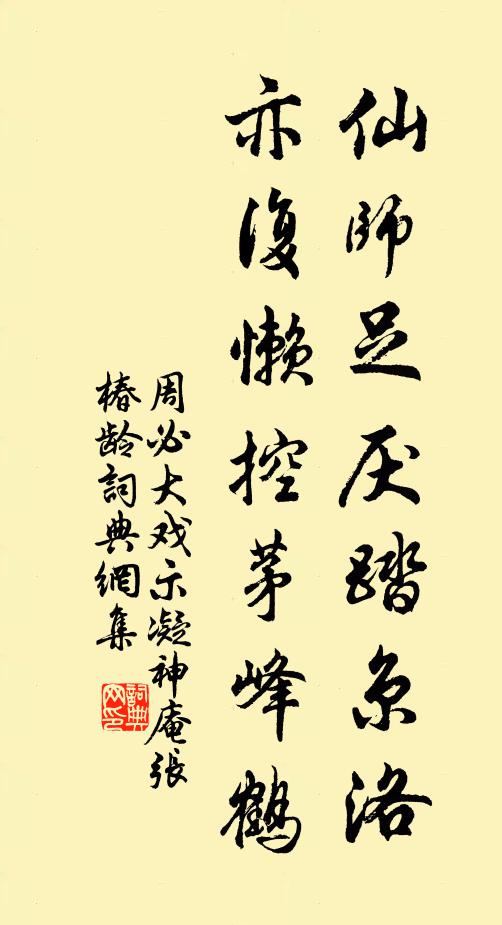 仙师足厌踏京洛
亦复懒控茅峰鹤
周必大戏示凝神庵张
椿龄词典网集
词典网印